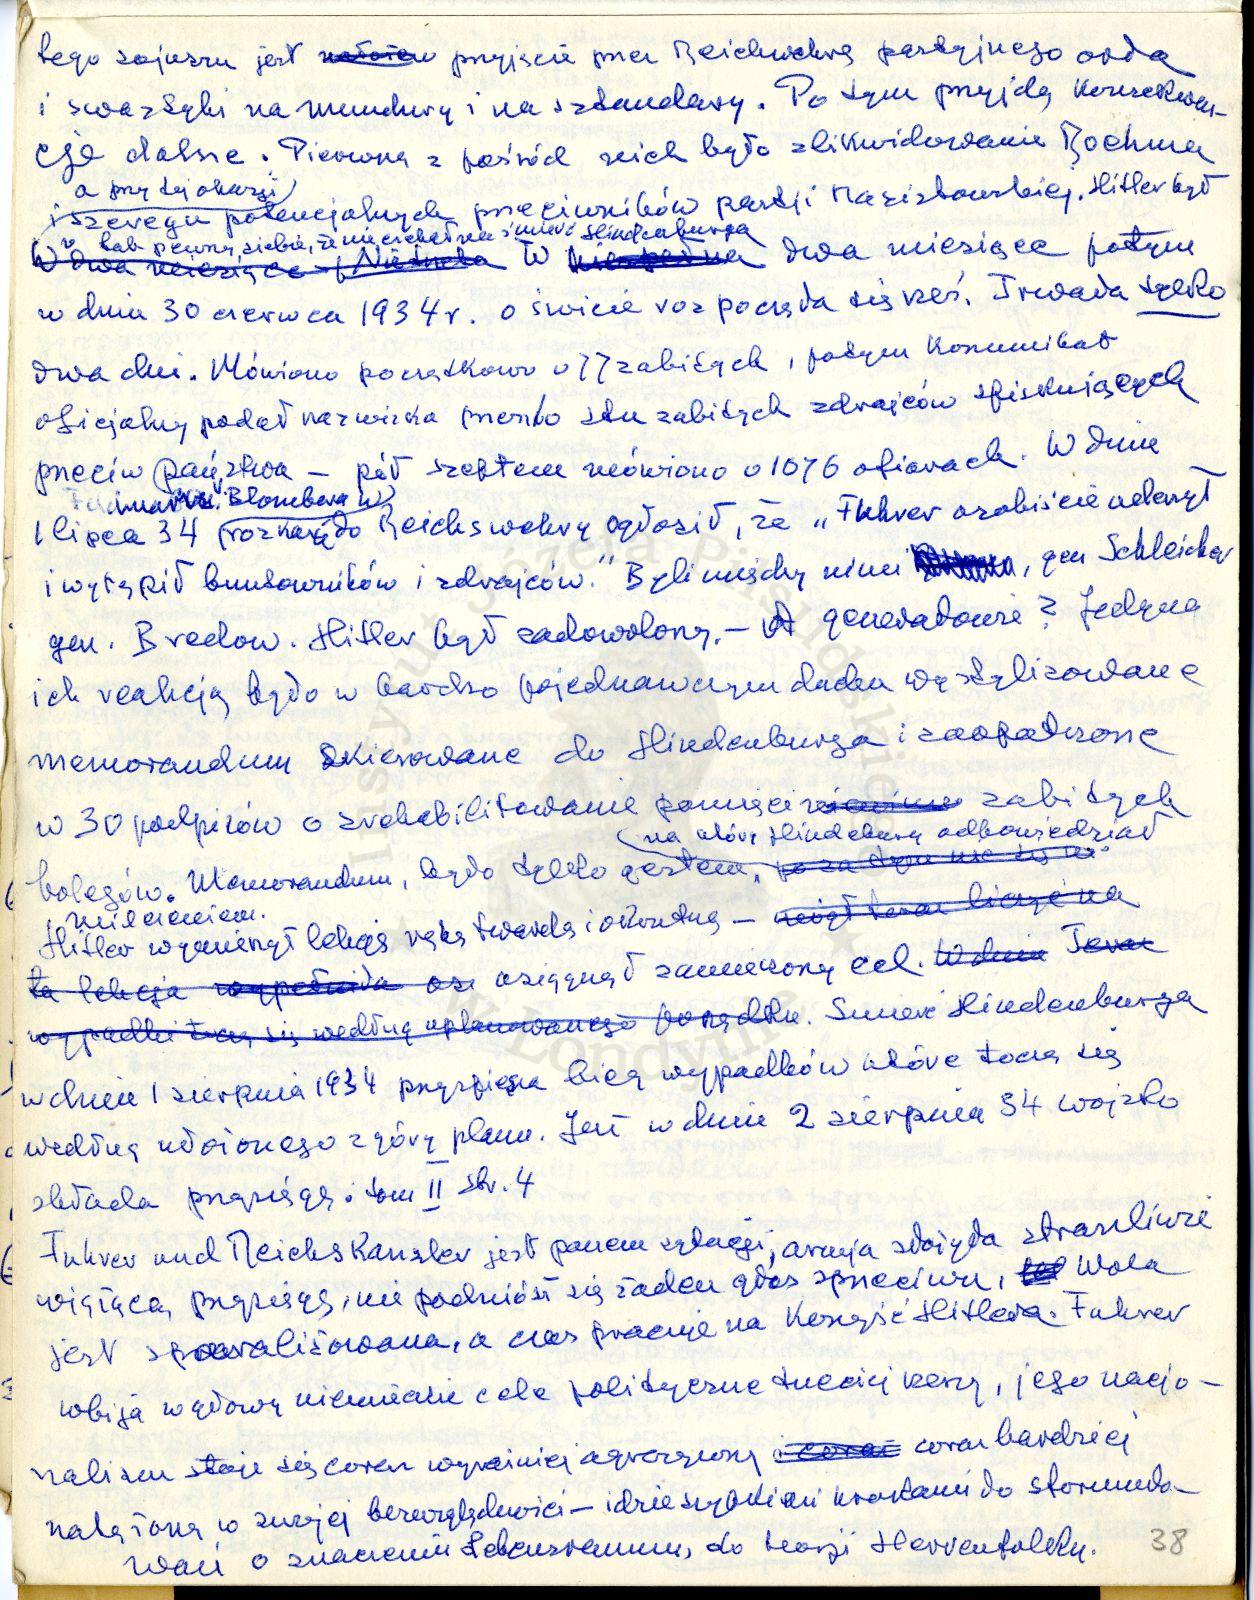 tego sojuszu jest przyjęcie przez Reichswehrę partyjnego orła
i swastyki na mundury i na sztandary. Po tym przyjdą konsekwen-
cje dalsze. Pierwszą z pośród nich było zlikwidowanie Roehma
a przy tej okazji
i szeregu potencjalnych przeciwników partji nazistowskiej. Hitler był
tak pewny siebie, że nie czekał na śmierć Hindenburga
W dwa miesiące potym
w dniu 30 czerwca 1934 r. o świcie rozpoczęła się rzeź. Trwała tylko
dwa dni. Mówiono początkowo o 77 zabitych, potym komunikat
oficjalny podał nazwiska prawie stu zabitych zdrajców spiskujących
przeciw państwu – pół szeptem mówiono o 1076 ofiarach. W dniu
Feldmarsz. Blomberg w
1 lipca 34 rozkazie do Reichswehry ogłosił, że „Fuhrer osobiście uderzył
i wytępił buntowników i zdrajców." Byli między nimi, gen Schleicher
gen. Bredow. Hitler był zadowolony, – A generałowie? Jedyną
ich reakcją było w bardzo pojednawczym duchu wystylizowane
memorandum skierowane do Hindenburga i zaopatrzone
w 30 podpisów o zrehabilitowanie pamięci zabitych
na który Hindenburg odpowiedział
kolegów. Memorandum, było tylko gestem,
milczeniem.
Hitler wymierzył lekcję ręką twardą i okrutną –
osiągnął zamierzony cel.
Śmierć Hindenburga
w dniu 1 sierpnia 1934 przyspiesza bieg wypadków które toczą się
według ułożonego z góry planu. Już w dniu 2 sierpnia 34 wojsko
składa przysięgę. tom II str. 4
Fuhrer und Reichskanzler jest panem sytuacji, armja złożyła straszliwie
wiążącą przysięgę, nie podniósł się żaden głos sprzeciwu, Wola
jest sparaliżowana, a czas pracuje na korzyść Hitlera. Fuhrer
wbija w głowy niemieckie cele polityczne trzeciej rzeszy, jego nacjo-
nalizm staje się coraz wyraźniej agresywny coraz bardziej
natężony w swojej bezwzględności – idzie szybkimi krokami do sformuło-
wań o znaczeniu Lebensraumu, do teorji Herrenfolku.
38
Instytut Józefa Piłsudskiego
w Londynie